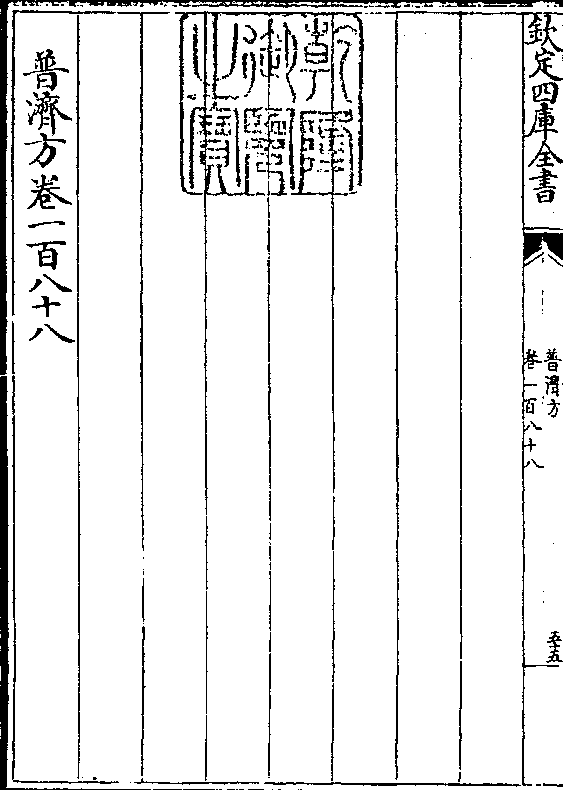 欽定四庫全書
普濟方
卷一百八十八
五十五
乾隆御覽之寶
普濟方卷一百八十八